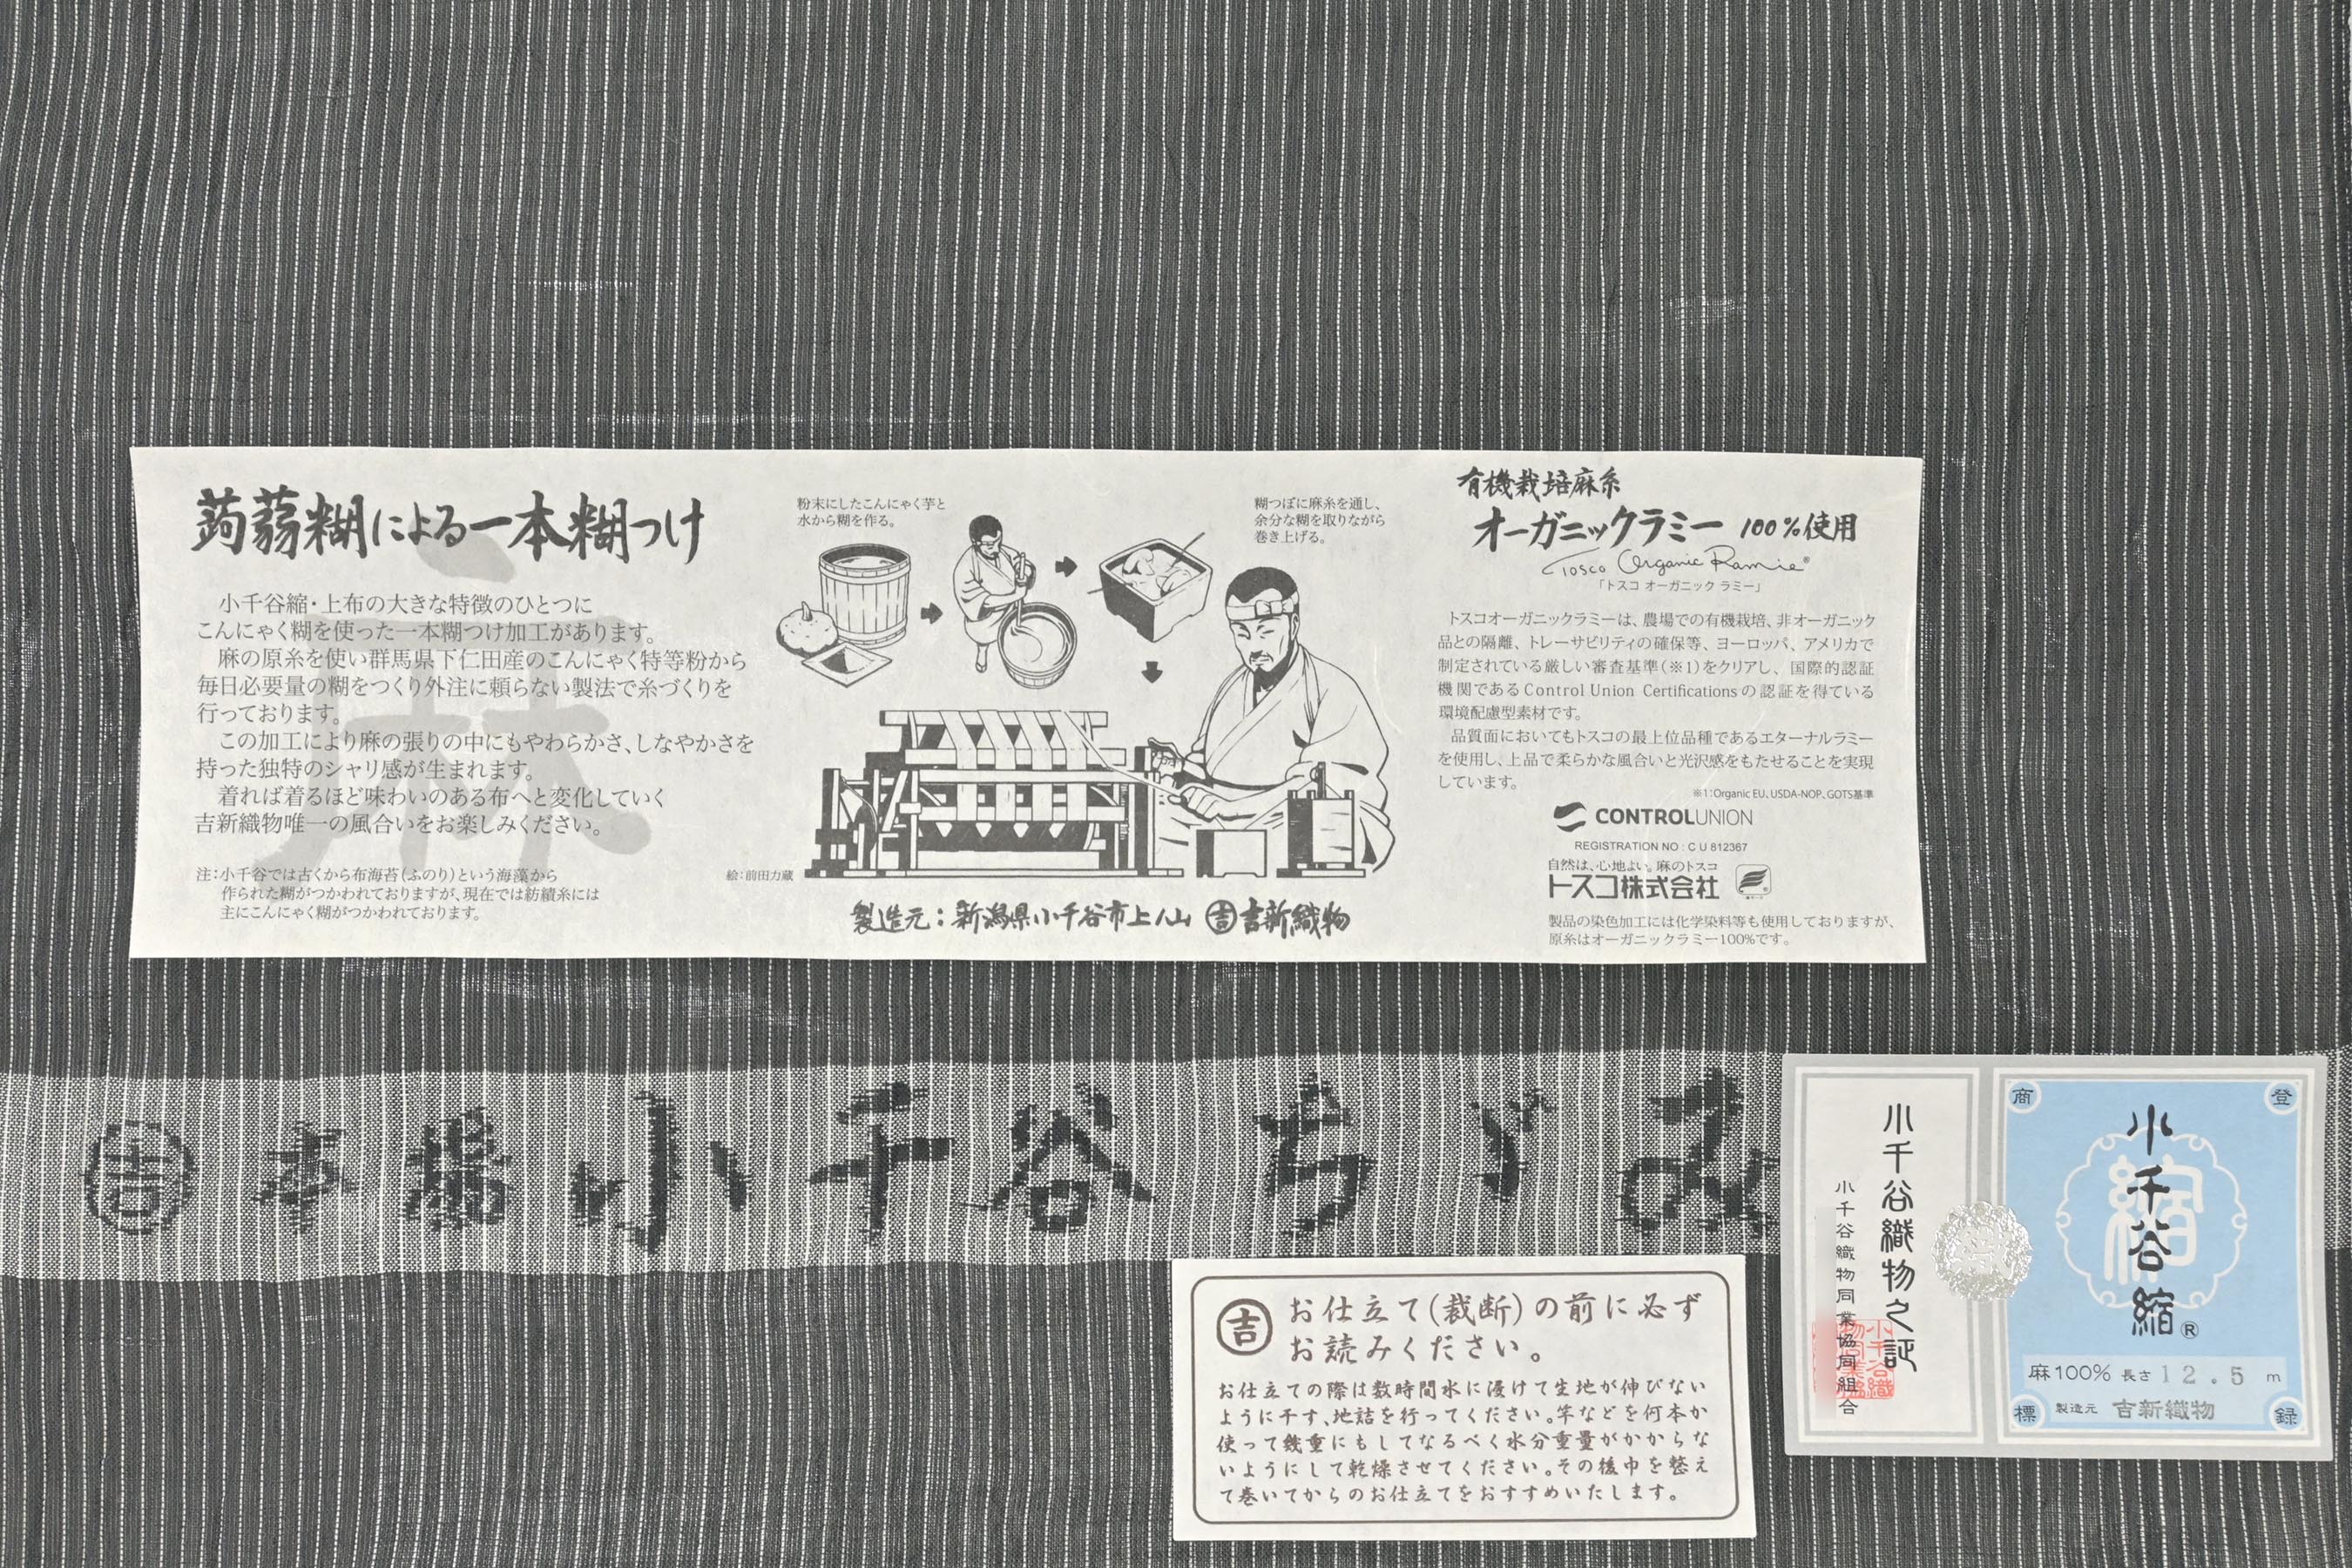 蒟蒻糊による一本糊つけ
小千谷縮・上布の大きな特徴のひとつに
こんにゃく糊を使った一本糊つけ加工があります。
麻の原糸を使い群馬県下仁田産のこんにゃく特等粉から
毎日必要量の糊をつくり外注に頼らない製法で糸づくりを
行っております。
この加工により麻の張りの中にもやわらかさ、しなやかさを
持った独特のシャリ感が生まれます。
着れば着るほど味わいのある布へと変化していく
吉新織物唯一の風合いをお楽しみください。
麻
注:小千谷では古くから布海苔(ふのり)という海藻から
作られた糊がつかわれておりますが、現在では紡績糸には
主にこんにゃく糊がつかわれております。
粉末にしたこんにゃく芋と
水から糊を作る。
糊つぼに麻糸を通し、
余分な糊を取りながら
巻き上げる。
絵:前田力蔵
製造元:新潟県小千谷市上ノ山 吉 吉新織物
有機栽培麻糸
オーガニックラミー 100%使用
Tosco Organic Ramie®
「トスコ オーガニック ラミー」
トスコオーガニックラミーは、農場での有機栽培、非オーガニック
品との隔離、トレーサビリティの確保等、ヨーロッパ、アメリカで
制定されている厳しい審査基準(※1)をクリアし、国際的認証
機関であるControl Union Certificationsの認証を得ている
環境配慮型素材です。
品質面においてもトスコの最上位品種であるエターナルラミー
を使用し、上品で柔らかな風合いと光沢感をもたせることを実現
しています。
※1:Organic EU、USDA-NOP、GOTS基準
CONTROLUNION
REGISTRATION NO : C U 812367
自然は、心地よい。麻のトスコ
トスコ株式会社
製品の染色加工には化学染料等も使用しておりますが、
原糸はオーガニックラミー100%です。
吉 本場小千谷ちゞみ
吉
お仕立て(裁断)の前に必ず
お読みください。
お仕立ての際は数時間水に浸けて生地が伸びない
ように干す、地詰を行ってください。竿などを何本か
使って幾重にもしてなるべく水分重量がかからな
いようにして乾燥させてください。その後巾を整え
て巻いてからのお仕立てをおすすめいたします。
小千谷織物之証
小千谷織物同業協同組合
商
登
標
録
縮
小千谷縮®
麻100% 長さ 12.5 m
製造元 吉新織物